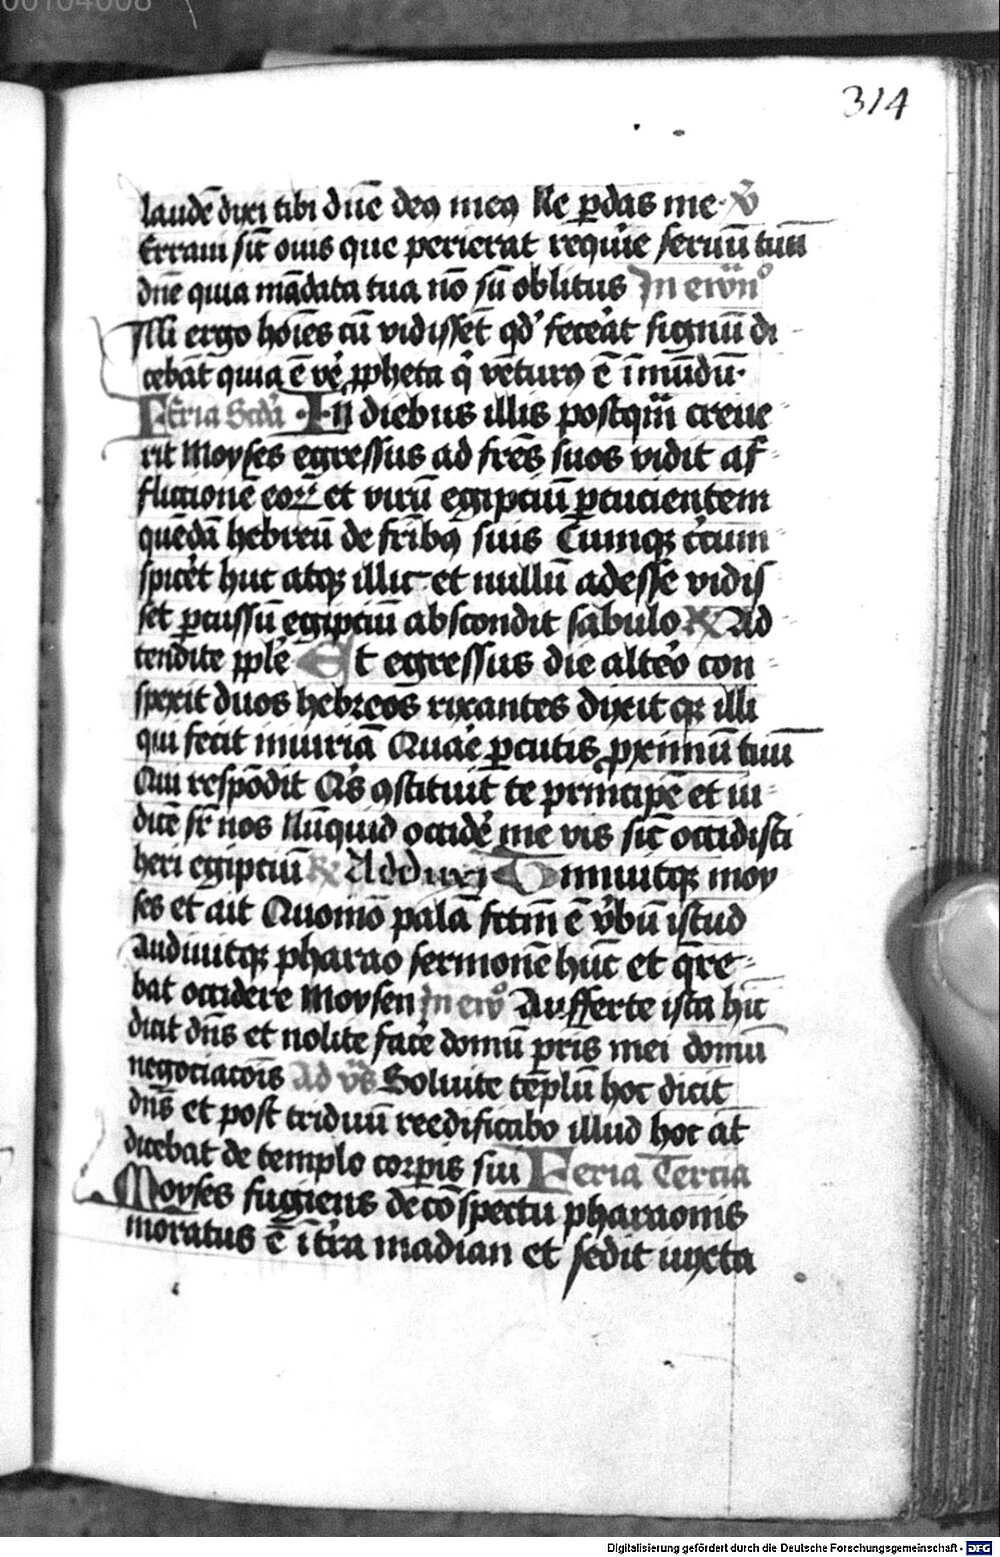 00104008
314
laudē dixi tibi dūe deꝯ meꝯ Ne ꝑdas me · ꝟ
Erraui sic̄ ouis que perierat reqͥre seruū tuū
dn̄e quia mādata tua nō sū oblitus In ewn̄º
Illi ergo hoīes cū vidissēt qdʼ fecerāt signū di
cebāt quia ē ve᷑ ꝓpheta q̇ vēturꝯ ē ī mūdū ·
Feria Scdā · In diebus illis postqm̄ creue
rit Moyses egressus ad fr̄es suos vidit af
flictionē eoꝝ et virū egiptiū ꝑcucientem
quēdā hebreū de frībꝯ suis Cumqꝫ cʼcum
spicet huc atqꝫ illuc et nullū adesse vidis
set ꝑcussū egiptiū abscondit sabulo ℟ Ad
tendite pp̄le Et egressus die alteo᷑ con
spexit duos hebreos rixantes dixitqꝫ illi
qui fecit iniuriā Quae᷑ ꝑcutis ꝓximū tuū
Qui respōdit Qͥs ꝯstituit te principē et iu
dicē sr̄ nos Nūquid occide᷑ me vis sic̄ occidisti
heri egiptiū ℟ Adduxi Timuitqꝫ moy
ses et ait Quomō palā fctm̄ ē ꝟbū istud
Audiuitqꝫ pharao sermonē hūc et qͣre
bat occidere Moysen In ewº Aufferte ista hīc
dicit dn̄s et nolite face᷑ domū pr̄is mei domū
negociacōīs Ad ꝟs Soluite tēplū hoc dicit
dn̄s et post triduū reedificabo illud hoc aт̄
dicebat de templo corꝑis sui Feria Tercia
Moyses fugiens de cōspectu pharaonis
moratus ē ī tʼra madian et sedit iuxta
Digitalisierung gefördert durch die Deutsche Forschungsgemeinschaft - DFG